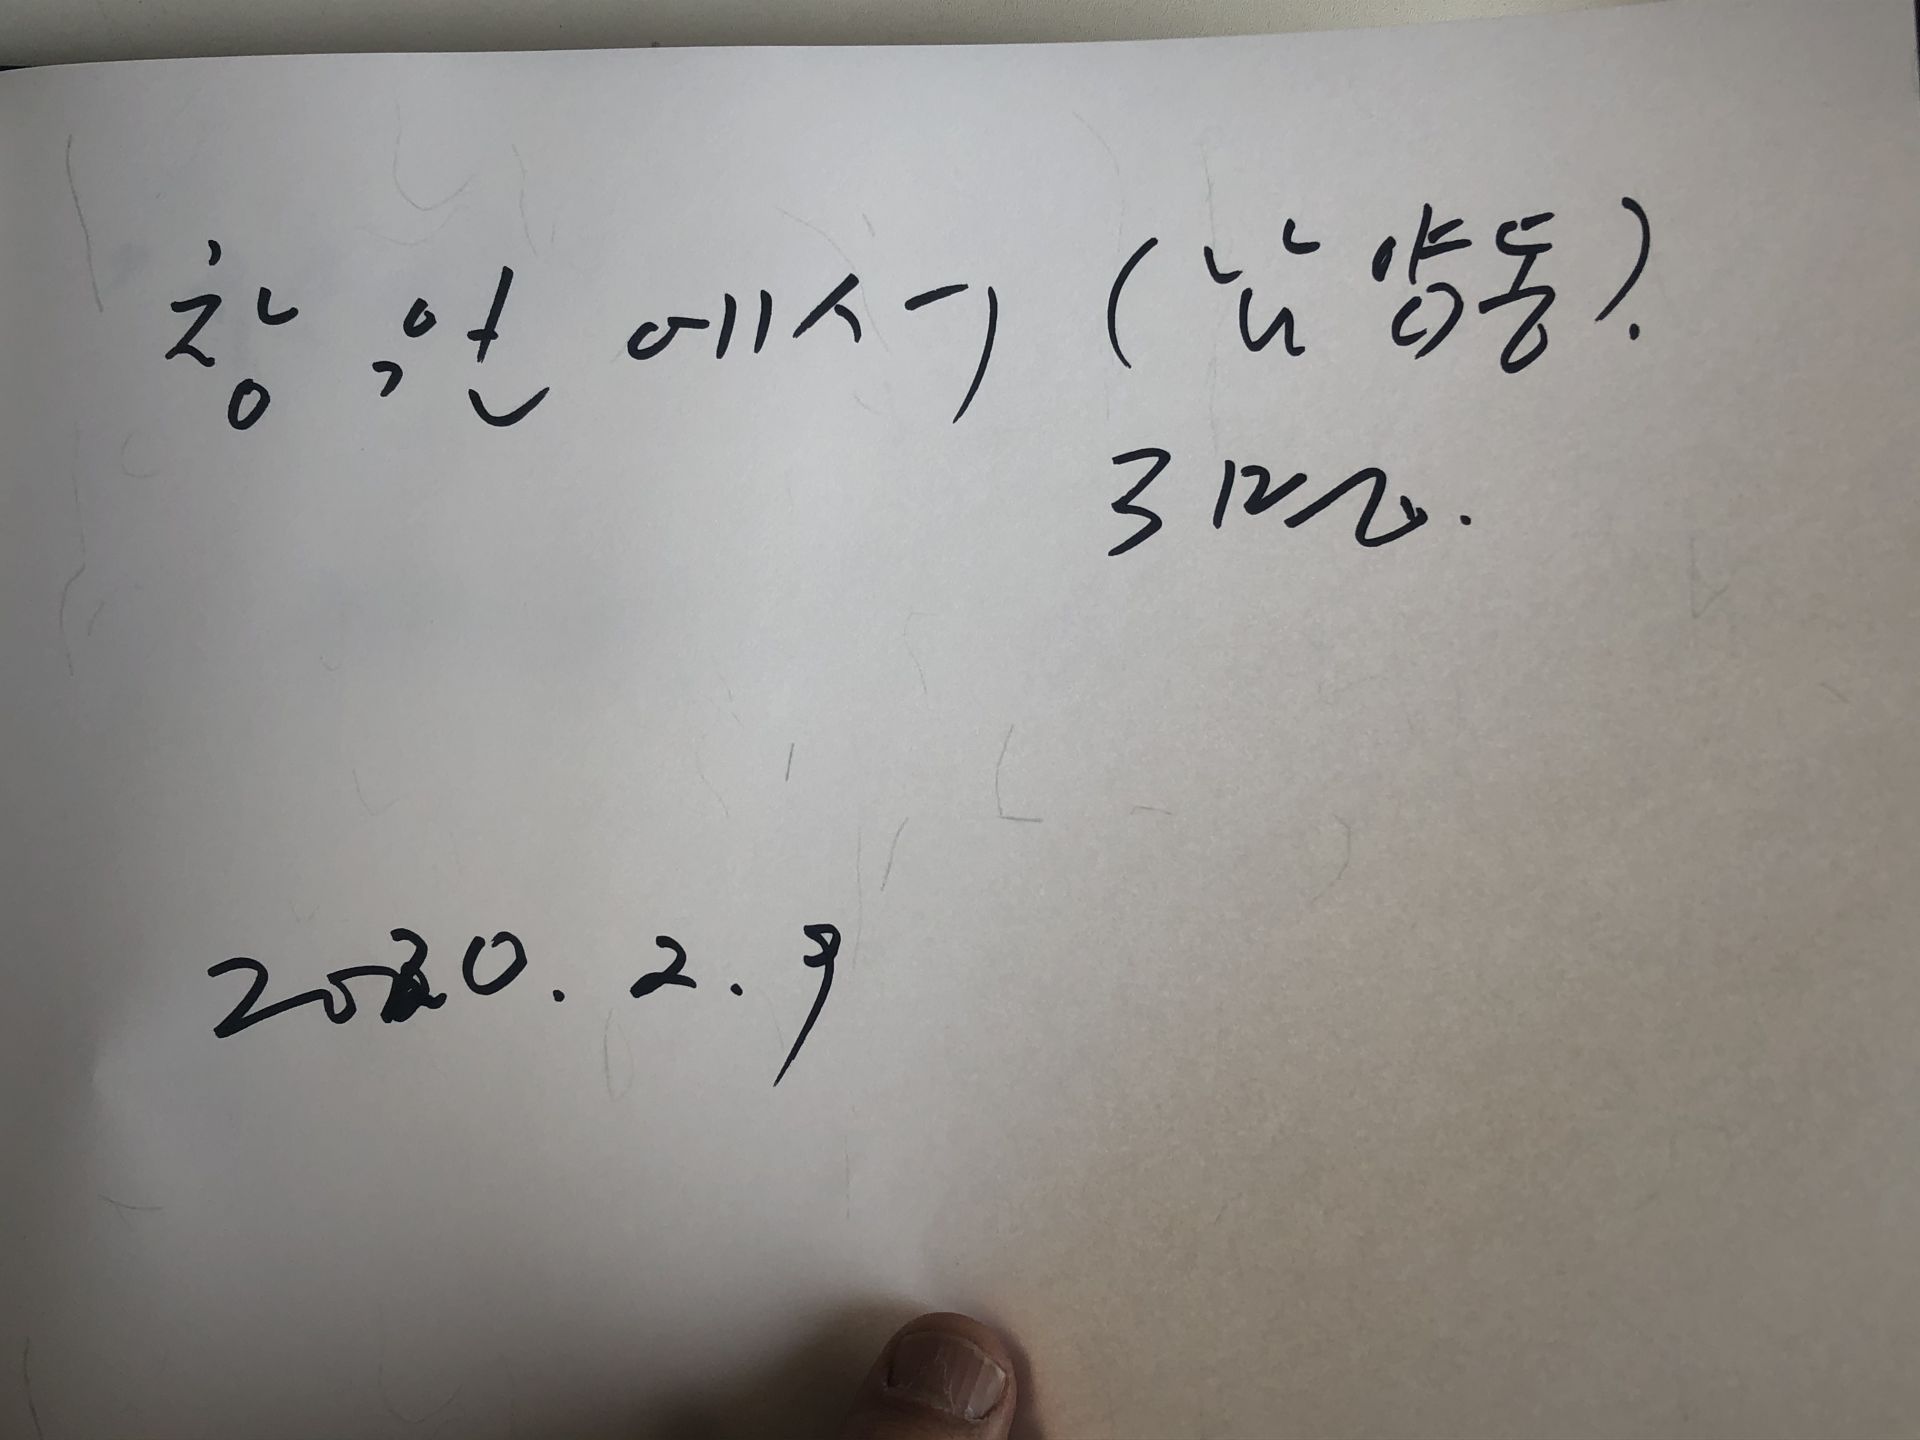 창원에서 (남양동).
3박.
2020. 2. 9